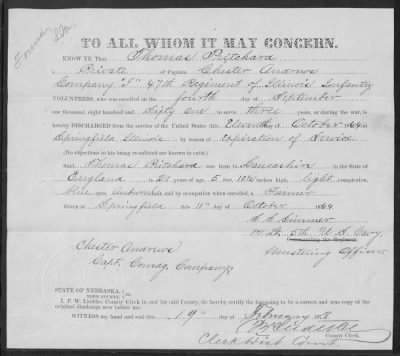 TO ALL WHOM IT MAY CONCERN.
KNOW YE That Thomas Pritchard
a Private of Captain Chester Andrews
Company "I" 47th Regiment of Illinois Infantry
VOLUNTEERS, who was enrolled on the fourth day of September
one thousand, eight hundred and Sixty One to serve three years, or during the war, is
hereby DISCHARGED from the service of the United States this Eleventh day of October 1864 at
Springfield Illinois by reason of Expiration of Service
(No objections to his being re-enlisted are known to exist.)
Said Thomas Pritchard was born in Lancashire in the State of
England is 21 years of age, 5 feet 10½ inches high, light complexion,
Blue eyes, Auburn hair, and by occupation when enrolled, a Farmer
Given at Springfield this 11th day of October 1864
1st Lt. 5th U.S. Cavy.
Commanding the Regiment
Mustering Officer
Chester Andrews
Capt. Comag. Company
STATE OF NEBRASKA,
YORK COUNTY,
County Clerk in and for said County, do hereby certify the foregoing to be a correct and true copy of the
original discharge now before me.
WITNESS my hand and seal this 19th day of February
County Clerk.
Clerk Dist Court